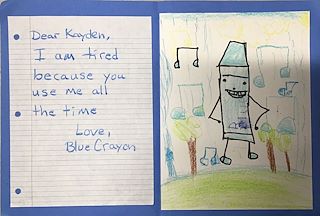 Dear Kayden,
I am tired
because you
use me all
the time
Love,
Blue Crayon